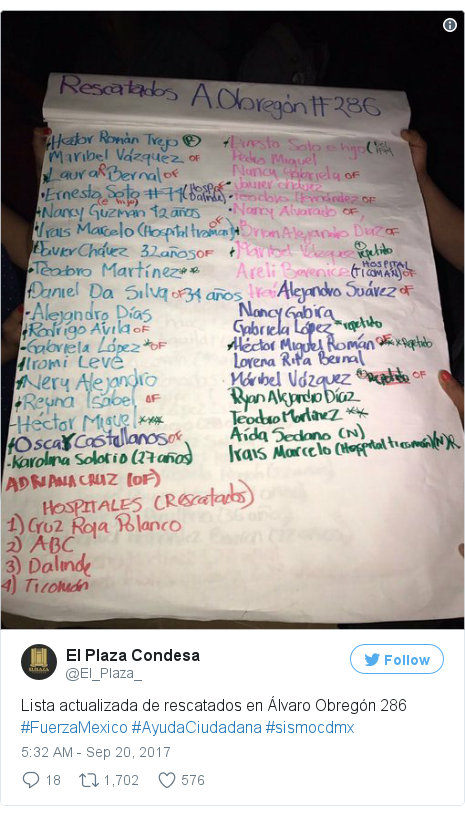 Rescatados A.Obregón #286
• Hector Román Trejo (R)
Maribel Vázquez OF
• Laura R Bernal OF
• Ernesto Soto #71 (Hosp Dalinde)
(e hijo)
• Nancy Guzman 42 años
• Irais Marcelo (Hospital ticoman) OF
• Javier Chávez 32 años OF
• Teodoro Martínez **
• Daniel Da Silva OF 34 años
• Alejandro Días
• Rodrigo Avila OF
• Gabriela López * OF
• Iromi Leve
• Nery Alejandro
• Reyna Isabel OF
- Hector Miguel ***
• Oscar Castellanos OF
- Karolina Solorio (27 años)
ADRIANA CRUZ (OF)
• Ernesto Soto e hijo
Pedro Miguel
Nancy Gabriela OF
• Javier Chávez
• Teodoro Hernández OF
• Nancy Alvarado OF
• Brian Alejandro Díaz OF
• Maribel Vázquez repetido
Areli Berenice (HOSPITAL TICOMAN) OF
Alejandro Suárez OF
Nancy Gabira
Gabriela López * repetido
• Héctor Miguel Román OF *** Repetido
Lorena Rita Bernal
Máribel Vázquez Repetido OF
Ryan Alejandro Díaz
Teodoro Martínez **
Aida Sedano (N)
Irais Marcelo (Hospital ticomán) (N) R
HOSPITALES (Rescatados)
1) Cruz Roja Polanco
2) ABC
3) Dalinde
4) Ticomán
El Plaza Condesa
@El_Plaza_
Follow
Lista actualizada de rescatados en Álvaro Obregón 286
#FuerzaMexico #AyudaCiudadana #sismocdmx
5:32 AM - Sep 20, 2017
18 1,702 576